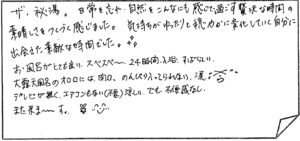 ザ・秘湯。日常を忘れ自然をこんなにも感じて過ごす贅沢な時間の
素晴しさをつくづく感じました。気持ちがゆったりと穏力かに変化していく自分に
出会えた素敵な時間でした。
お風呂がとても良い、スベスベ〜。24時間入浴、すばらしい。
大露天風呂のオロロには、閉口、のんびり入ってられない、涙
テレビが無く、エアコンもない(不要)涼しい。でも不便感なし
また来ま〜す。